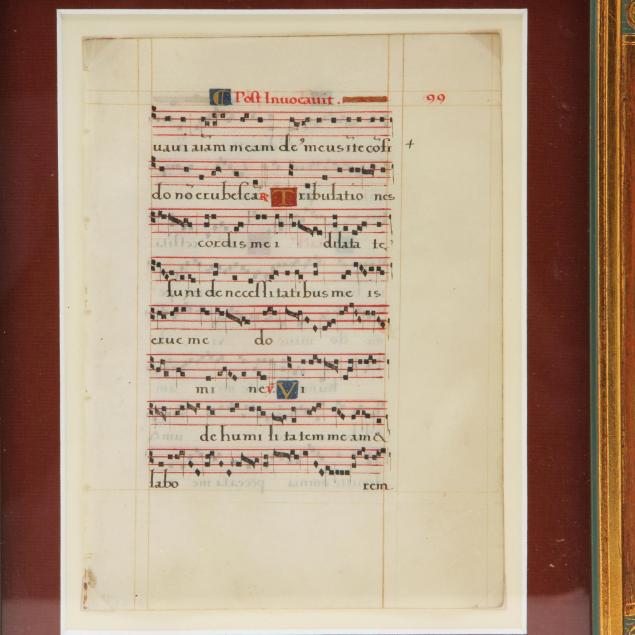 C Post Inuocauit. 99
uaui aīam meam de' meus ī te cōfi +
do nō erubescā ℟ Tribulatio nes
cordis me i dilata te'
sunt de necessitatibus me is
erue me do
mi ne ℣. Vi
de humi li ta tem me am &
labo rem